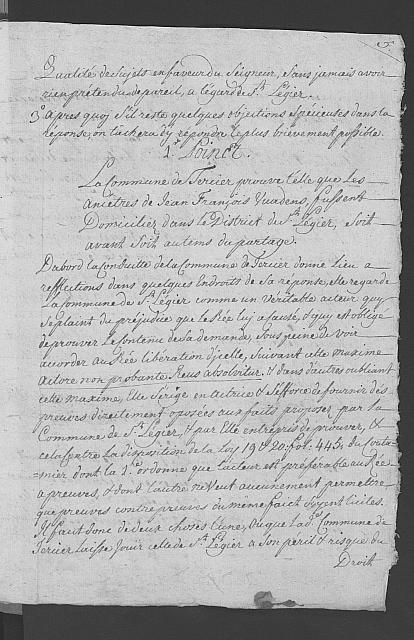 Qualité de sujets en faveur du Seigneur, sans jamais avoir
rien prétendu de pareil, a légard de St. Légier.
3° apres quoy s'il reste quelques objections spécieuses dans la
réponse, on tachera d'y repondre le plus brièvement possible.
1r. Point.
La Commune de Tercier prouve t'elle que les
Ancetres de Jean François Quadens, fussent
Domiciliez dans le District de St. Légier, soit
avant soit au tems du partage.
Dabord la conduitte de la Commune de Tercier donne lieu a
refflections dans quelques Endroits de sa réponse, elle regarde
la Commune de St. Légier comme un veritable acteur quy
se plaint du préjudice que le Rée luy a causé, & quy est obligé
de prouver le contenu de sa demande, sous peine de voir
accorder au Rée libération d'jcelle, suivant cette maxime
Actore non probante Reus absolvitur. & dans d'autres oubliant
cette maxime, Elle s'érige en actrice & s'efforce de fournir des
preuves directement oposées aux faits proposez par la
Commune de St. Légier, & par Elle entrepris de prouver, &
cela contre la disposition de la loy 19 & 20. fol. 445, du coutu=
=mier dont la 1e. ordonne que lacteur est préferable au Rée
a preuves, & dont l'autre ne veut aucunement permettre
que preuves contre preuves du même faict soyent licites.
Il faut donc de deux choses l'une, ou que la de. Commune de
Tercier laisse jouir celle de St. Légier a son peril & risque du
Droit